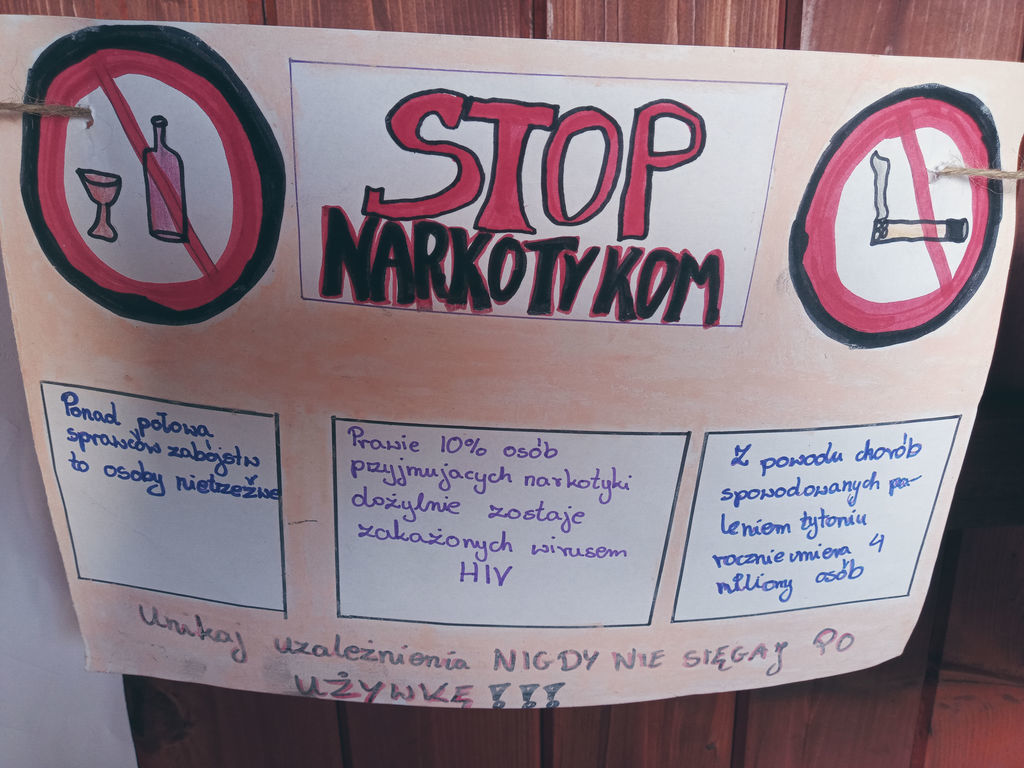 STOP
NARKOTYKOM
Ponad połowa
sprawców zabójstw
to osoby nietrzeźwe
Prawie 10% osób
przyjmujących narkotyki
dożylnie zostaje
zakażonych wirusem
HIV
Z powodu chorób
spowodowanych pa-
leniem tytoniu
rocznie umiera 4
miliony osób
Unikaj uzależnienia NIGDY NIE SIĘGAJ PO
UŻYWKĘ !!!